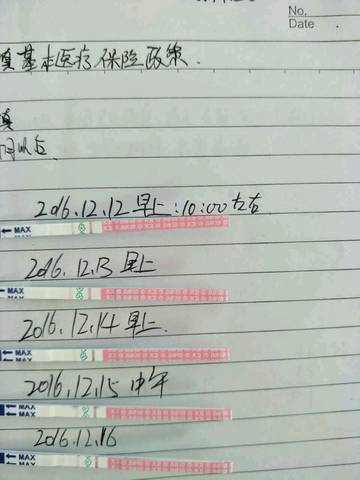 No.
Date
基本医疗保险政策.
2016.12.12 早上:10:00左右
MAX
MAX
2016.12.13 早上
MAX
MAX
2016.12.14 早上.
MAX
MAX
2016.12.15 中午
MAX
MAX
2016.12.16
MAX
MAX